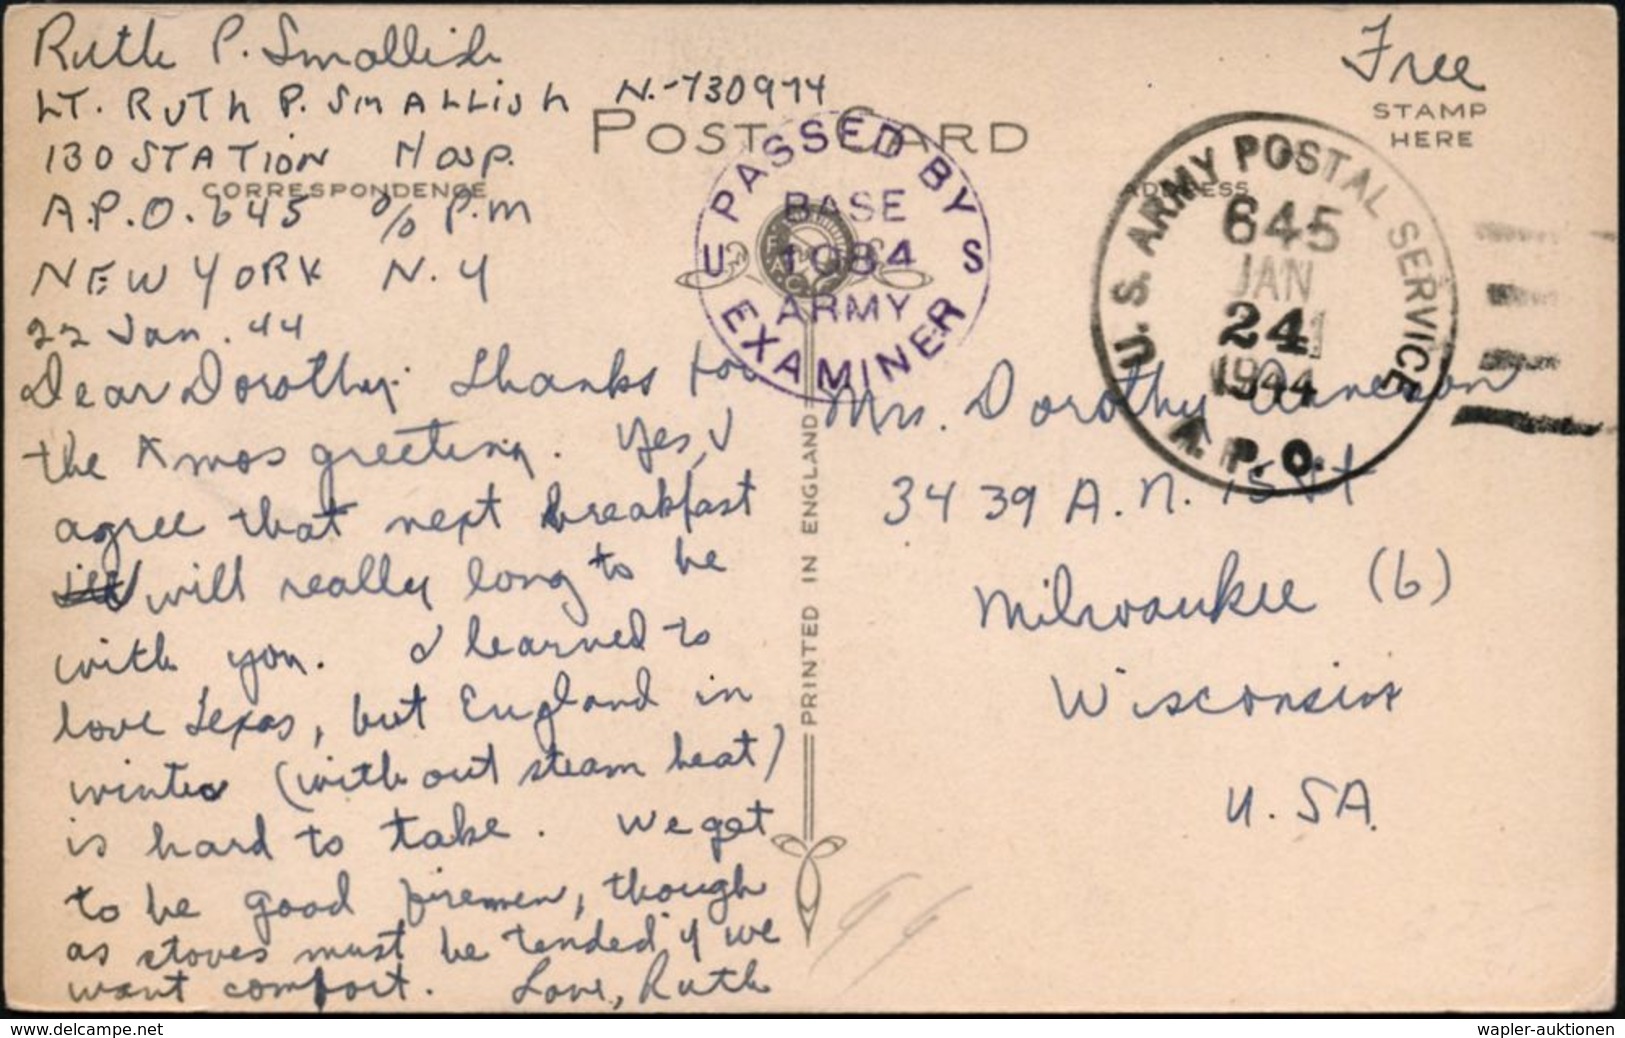 Ruth P. Smallish
LT. RUTH P. SMALLISH N.-730974
130 STATION HOSP.
A.P.O. 645 c/o P.M
NEW YORK N.Y
22 Jan. 44
Dear Dorothy: Thanks for
the Xmas greeting. Yes, I
agree that next breakfast
will really long to be
with you. I learned to
love Texas, but England in
winter (without steam heat)
is hard to take. We get
to be good firemen, though
as stoves must be tended if we
want comfort. Love, Ruth
POST CARD
CORRESPONDENCE
ADDRESS
PRINTED IN ENGLAND
PASSED BY
BASE
U 1984 S
ARMY
EXAMINER
Free
STAMP
HERE
U.S. ARMY POSTAL SERVICE
645
JAN
24
1944
A.P.O.
Mrs. Dorothy Arneson
3439 A. N. 15 St
Milwaukee (6)
Wisconsin
U.SA.
www.delcampe.net
wapler-auktionen